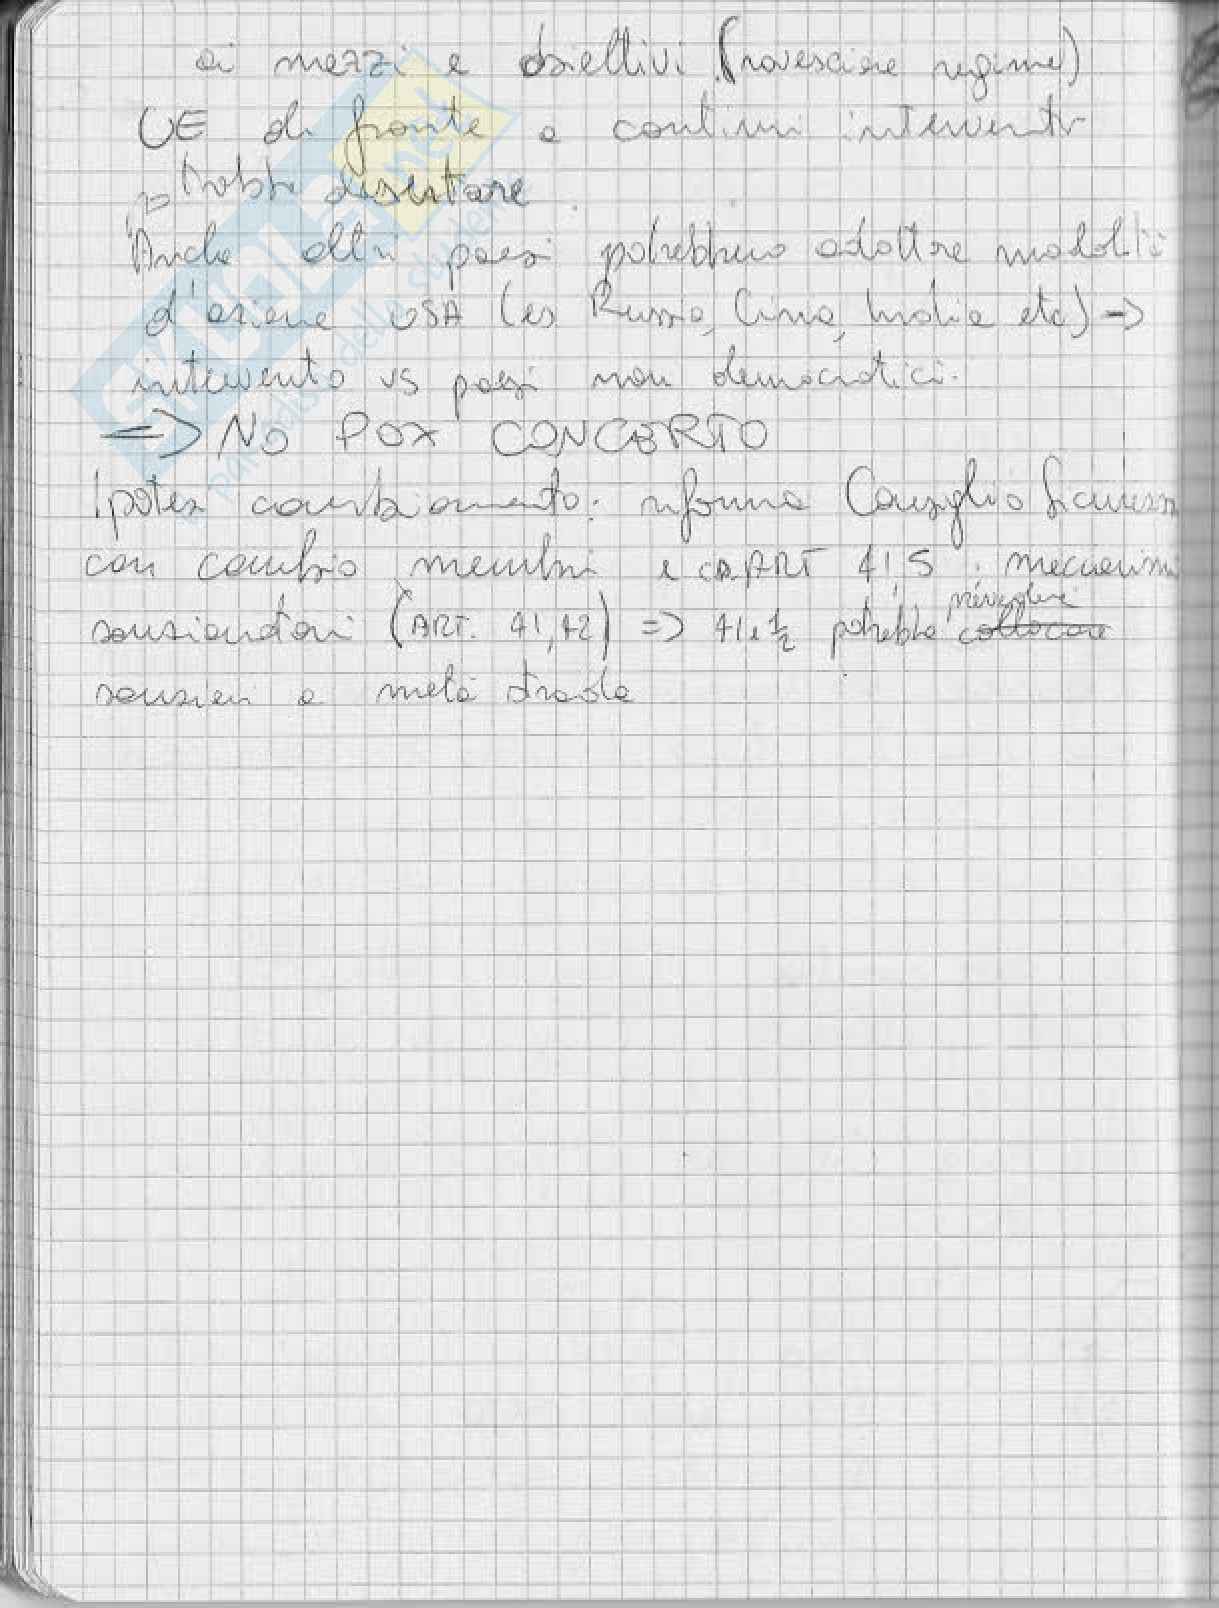 ai mezzi e obiettivi (rovesciare regime)
UE di fronte a continui interventi
potrebbe disertare
Anche altri paesi potrebbero adottare modalità
d'azione USA (es Russia, Cina, India etc) =>
intervento vs paesi non democratici.
=> NO POX CONCERTO
Ipotesi cambiamento: riforma Consiglio Sicurezza
con cambio membri e ART 41,5 meccanismi
sanzionatori (ART. 41,42) => 41 e 1/2 potrebbe prevedere
sanzioni a metà strada
SKUOLA.net